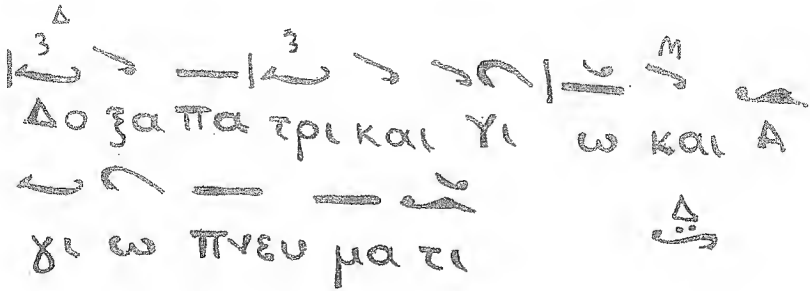 Δο ξα πα τρι και γι ω και Α
γι ω πνευ μα τι